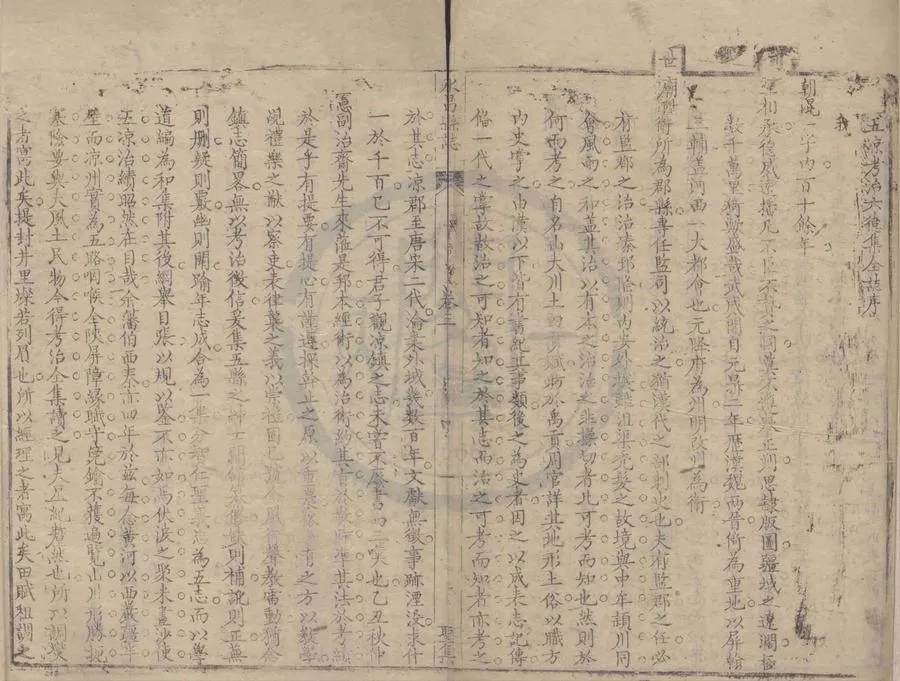 五涼考治六德集全誌序
我
朝混一宇內百十餘年
聖相承德威遠播凡不臣不貢之國莫不遵奉正朔思隸版圖疆域之遼闊極
數千萬里猗歟盛哉武威開自元鼎二年歷漢魏兩晉倚為重地以屏翰
三輔蓋河西一大都會也元隆府為州明改州為衛
世
廟
衛所為郡縣專任監司以統治之猶漢代之部刺史也夫有監郡之任必
有監郡之治治漆邽
內安外攘
之故境與中牟潁川同
會風雨之和蓋其治以有本之治治之非操切者比可考而知也然則於
何而考之自名山大川土田
賦昉於禹貢周官詳其地形土俗以職方
內史掌之由漢以下皆有書紀其事類後之為史者因之以成表志記傳
備一代之掌故故治之可知者知之於其志而治之可考而知者亦考之
永昌縣志
卷三
聖集
於其志涼郡至唐宋二代淪棄外域幾數百年文獻無徵事跡湮沒求什
一於千百已不可得君子觀涼鎮之志未嘗不廢書四三嘆也乙丑秋仲
憲副治齋先生來蒞是邦本經術以為治術
其法於考績
於是乎有提要有提心有謹邏採幹止之原以重農
有之方以敦學
覘禮樂之猷以察吏表律業之義以崇
聲教雷動猶念
鎮志簡畧無以考治徵信爰集五縣之紳士
則補訛則正蕪
則刪疑則覈幽則闡踰年志成合為一集分智仁聖義忠為五志而以學
道編為和集附其後綱舉目張以規以鑒不亦如馮伏波之聚米畫沙使
五涼治績昭然在目哉余藩伯西秦亦四年於茲每念黃河以西嚴疆半
壁而涼州實為五路咽喉全陝屏障緣職守筦鑰不獲遍覽山川形勝扼
塞險要與夫風土民物今得考治全集讀之見夫星紀若然也所以調燮
之者寓此矣提封井里燦若列眉也所以經理之者寓此矣田賦租調之